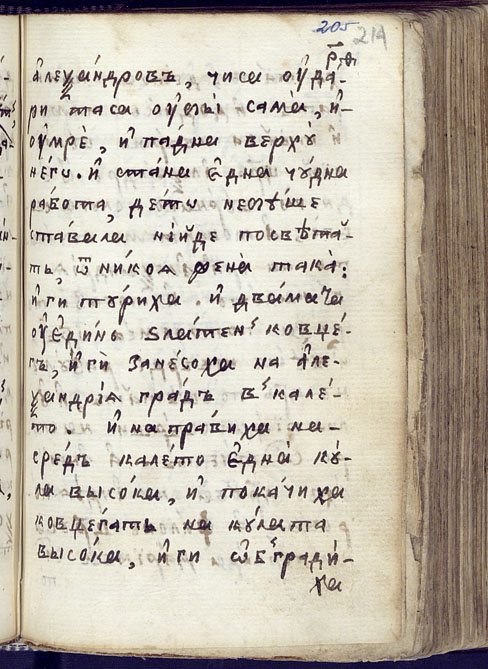 205 214
р҃ѳі
а҆леѯа́ндровъ, чи са ᲂу҆да́-
ри таѧ са ᲂу҆мы̀ сама̀, и҆-
ᲂу҆мрѐ, и҆ па́дна верхꙋ̀
не́гѡ. и҆ ста́на є҆дна̀ чꙋ́дна
ра́бота, де́то не
ста́вала ни́йде по свѣта̀-
тъ, ѿ ни́коѧ жена̀ така̀:
и҆ ги тꙋ́риха и҆ два́мата
ᲂу҆ є҆ди́нъ ѕла́тенъ ковче́-
гъ, и҆ гѝ зане́соха на а҆ле-
ѯандрі́ѧ гра́дъ в кале́-
то. и҆ напра́виха на-
сре́дъ кале́то є҆дна̀ кꙋ́-
ла высо́ка, и҆ пока́чиха
ковчегатъ на кꙋ́лата
высо́ка, и҆ ги ѡ҆бгради́-
ха